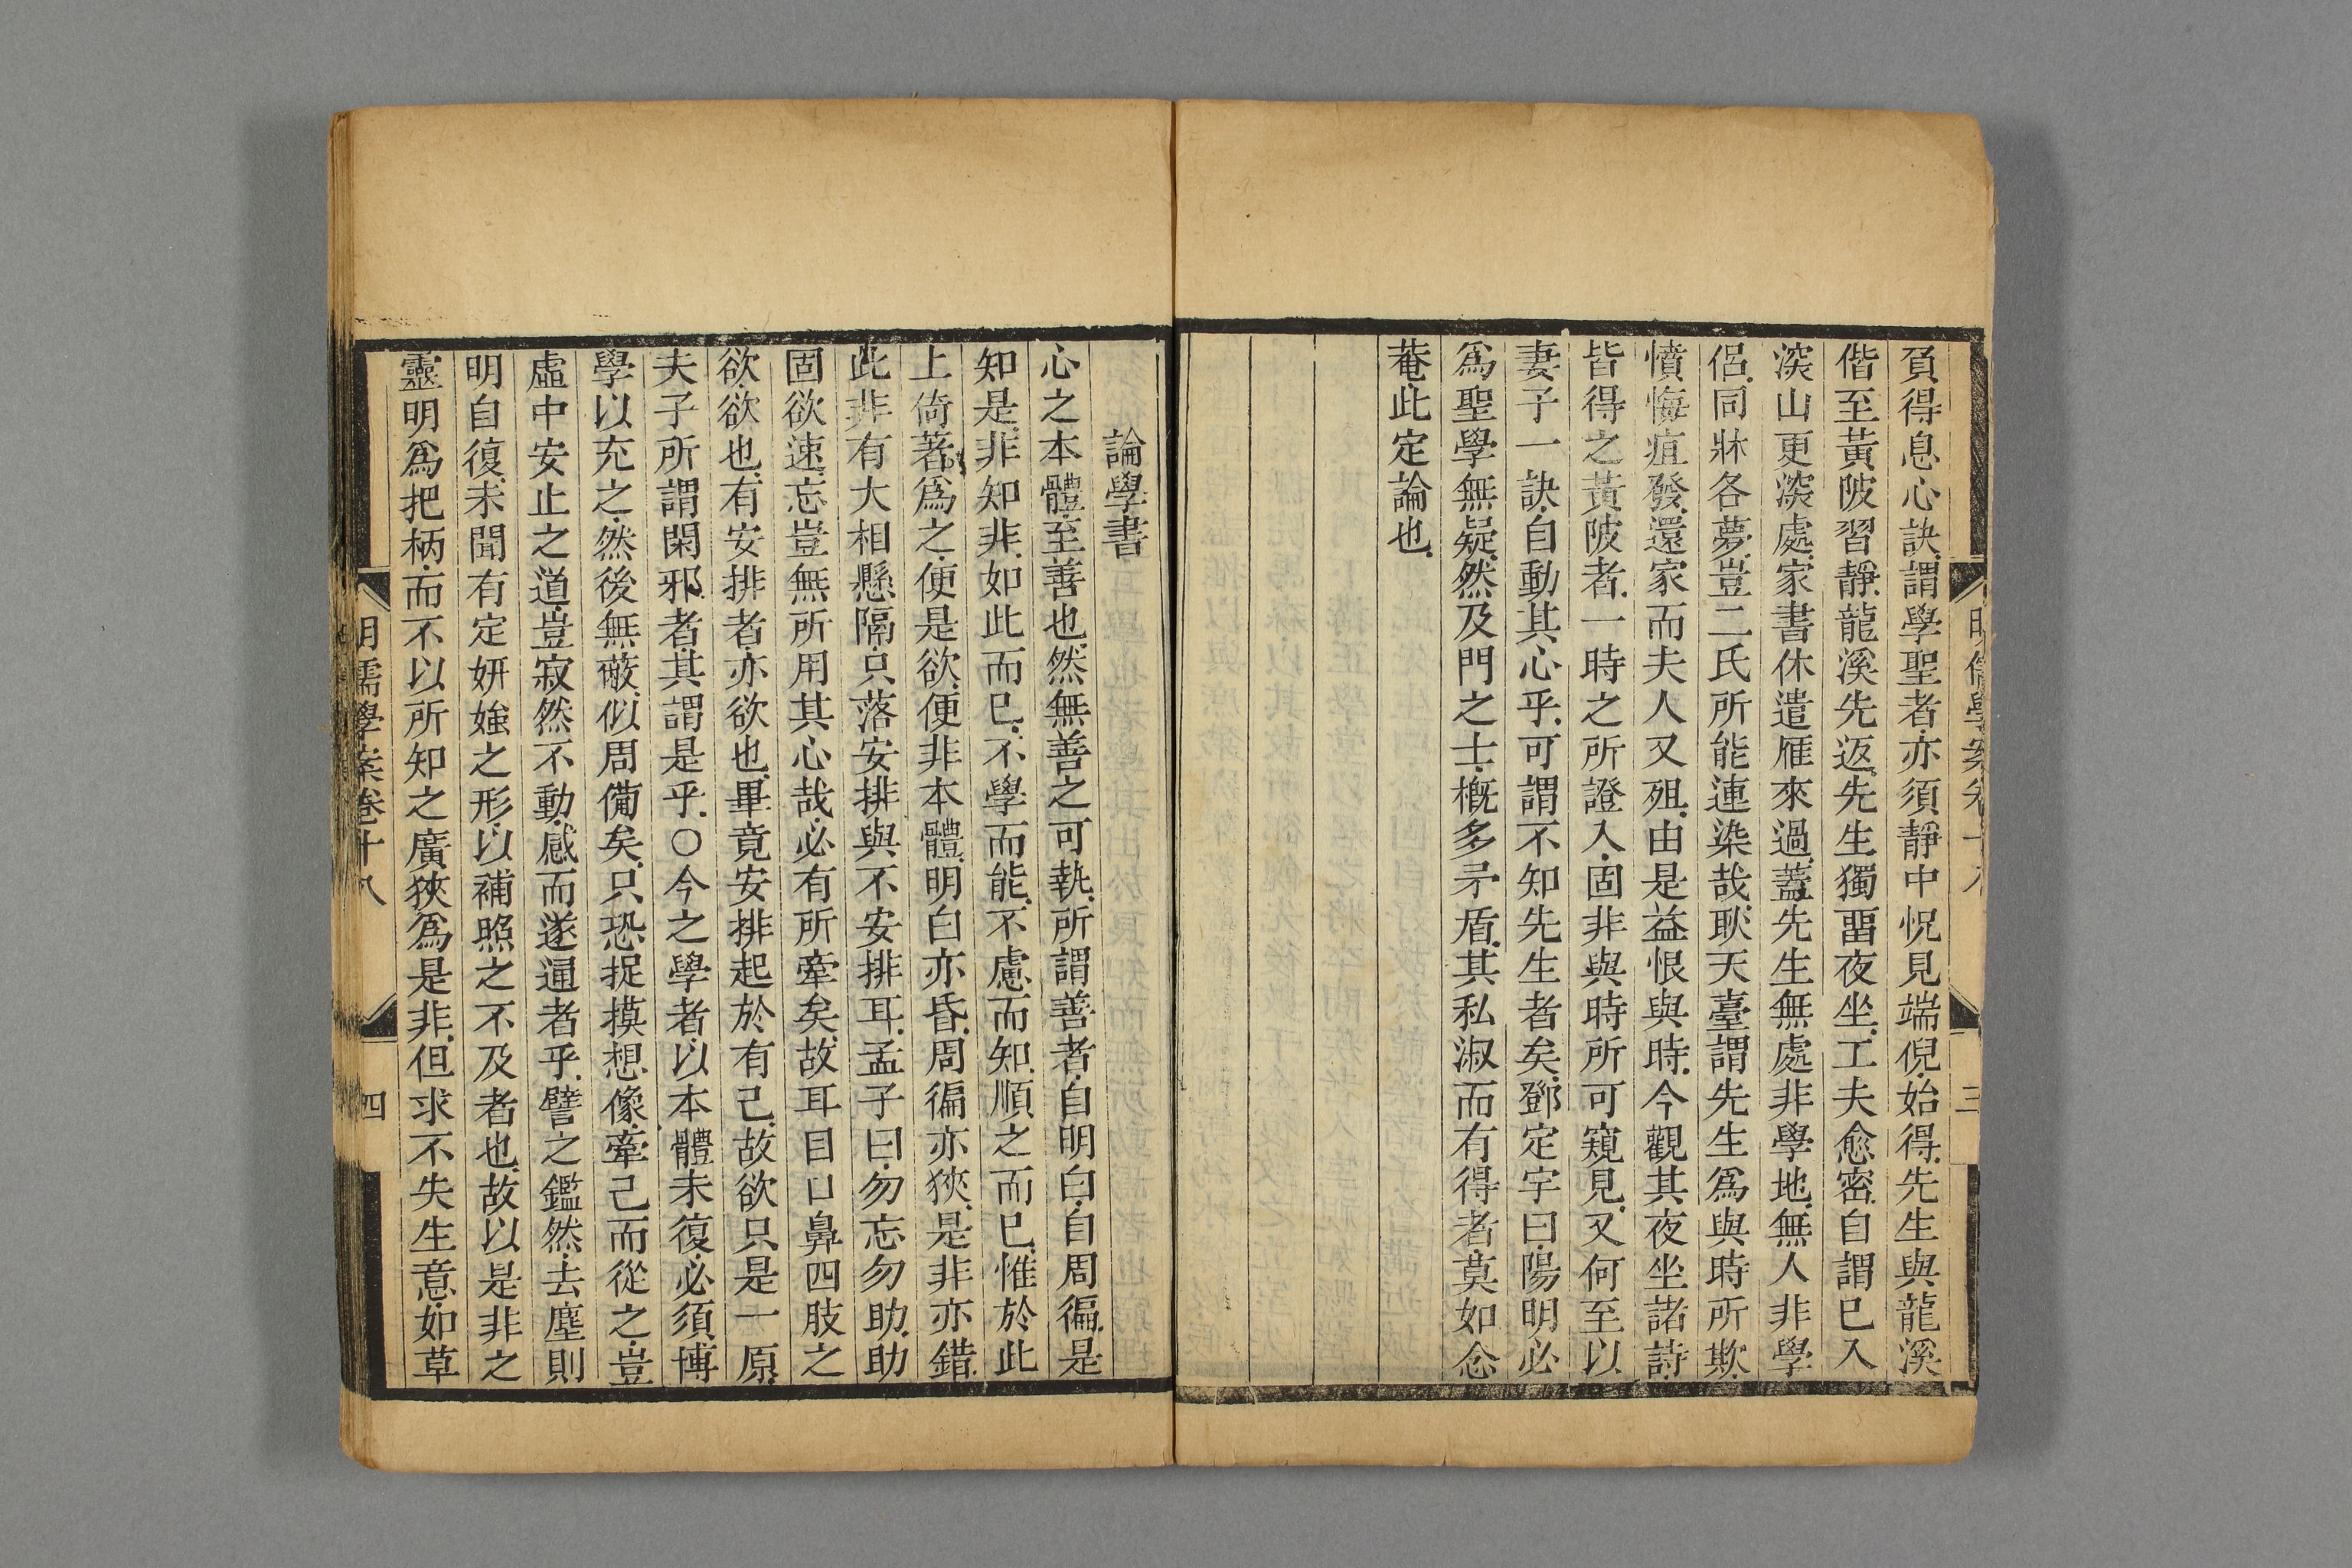 明儒學案卷十八
三
負得息心訣謂學聖者亦須靜中怳見端倪始得先生與龍溪
偕至黃陂習靜龍溪先返先生獨畱夜坐工夫愈密自謂已入
深山更深處家書休遣雁來過蓋先生無處非學地無人非學
侣同牀各夢豈二氏所能連染哉耿天臺謂先生爲與時所欺
憤悔疽發還家而夫人又殂由是益恨與時今觀其夜坐諸詩
皆得之黃陂者一時之所證入固非與時所可窺見又何至以
妻子一訣自動其心乎可謂不知先生者矣鄧定宇曰陽明必
爲聖學無疑然及門之士概多矛盾其私淑而有得者莫如念
菴此定論也
論學書
心之本體至善也然無善之可執所謂善者自明白自周徧是
知是非知非如此而已不學而能不慮而知順之而已惟於此
上倚著爲之便是欲便非本體明白亦昏周徧亦狹是非亦錯
此非有大相懸隔只落安排與不安排耳孟子曰勿忘勿助助
固欲速忘豈無所用其心哉必有所牽矣故耳目口鼻四肢之
欲欲也有安排者亦欲也畢竟安排起於有己故欲只是一原
夫子所謂閑邪者其謂是乎○今之學者以本體未復必須博
學以充之然後無蔽似周備矣只恐捉摸想像牽己而從之豈
虛中安止之道豈寂然不動感而遂通者乎譬之鑑然去塵則
明自復未聞有定妍媸之形以補照之不及者也故以是非之
靈明爲把柄而不以所知之廣狹爲是非但求不失生意如草
明儒學案卷十八
四